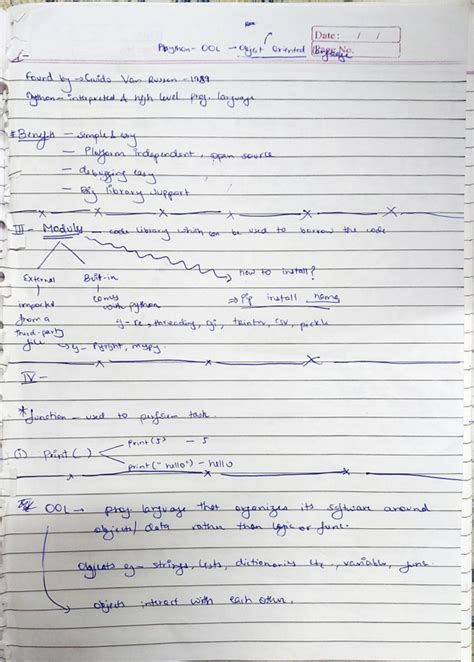 Date: / /
Page No.
Phython- OOL → Objet Oriented language
I-
Found by → Guido Van Russan - 1989
Python - interpreted & high level prog. language
* Benefit - simple & easy
- Platform independent, open source
- debugging easy
- Big library support
III - Moduly - code library which can be used to borrow the code
External Built-in how to install?
imported comes ⇒ Pip install name
from a with python
third-party eg- re, threading, cgi, tkinter, csv, pickle
file eg- Pyright, mypy.
IV -
* function - used to perform task.
(i) print ( ) print(5) - 5
print("hello") - hello
OOL → prog. language that organizes its software around
objects/data rather then logic or func.
Objects eg- strings, lists, dictionaries etc., variable, func
objects interact with each other.